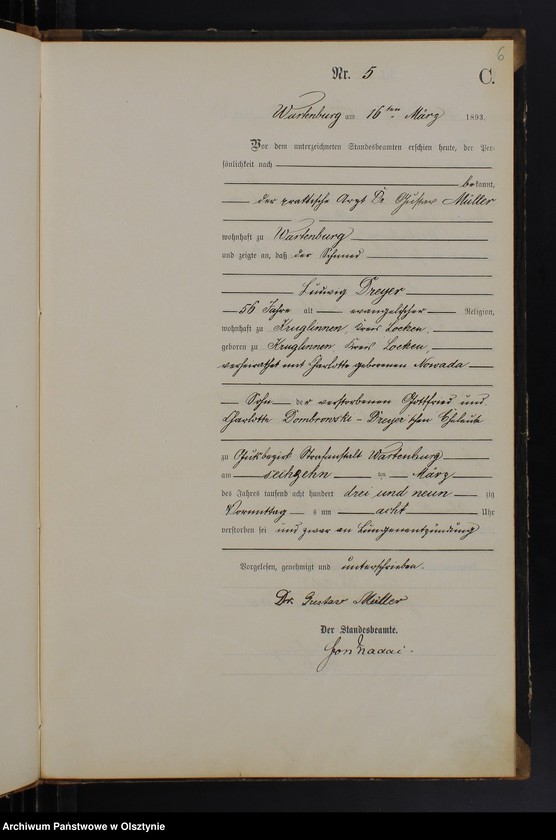 6
Nr. 5
C.
Wartenburg am 16ten März 1893.
Vor dem unterzeichneten Standesbeamten erschien heute, der Per-
sönlichkeit nach
bekannt,
der praktische Arzt Dr Gustav Müller
wohnhaft zu Wartenburg
und zeigte an, daß der Schmied
Ludwig Dreyer
56 Jahre alt evangelischer Religion,
wohnhaft zu Kruglinnen, Kreis Loetzen,
geboren zu Kruglinnen Kreis Loetzen,
verheirathet mit Charlotte geborenen Nowada
Sohn der verstorbenen Gottfried und
Charlotte Dombrowski - Dreyer'schen Eheleute
zu Gutsbezirk Strafanstalt Wartenburg
am sechzehn ten März
des Jahres tausend acht hundert drei und neun zig
Vormittag s um acht Uhr
verstorben sei und zwar an Lungenentzündung
Vorgelesen, genehmigt und unterschrieben.
Dr. Gustav Müller
Der Standesbeamte.
Archiwum Państwowe w Olsztynie